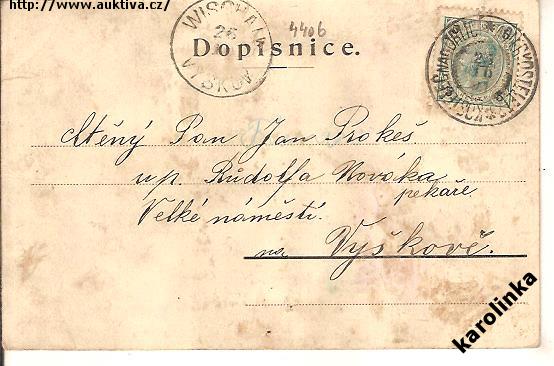 http://www.auktiva.cz/
WISCHAU
26
4406
Dopisnice.
Ctěný Pan Jan Prokeš
u p. Rudolfa Nováka
pekaře
Velké náměstí.
na Vyškově.
karolinka